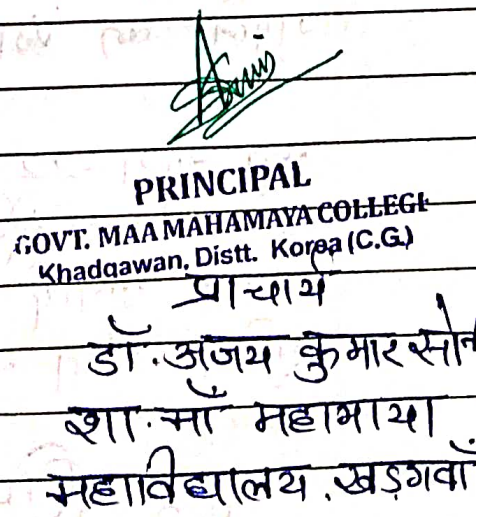 PRINCIPAL
GOVT. MAA MAHAMAYA COLLEGE
Khadgawan, Distt. Korea (C.G.)
प्राचार्य
डॉ. अजय कुमार सोन
शा. माँ महामाया
महाविद्यालय, खड़गवाँ